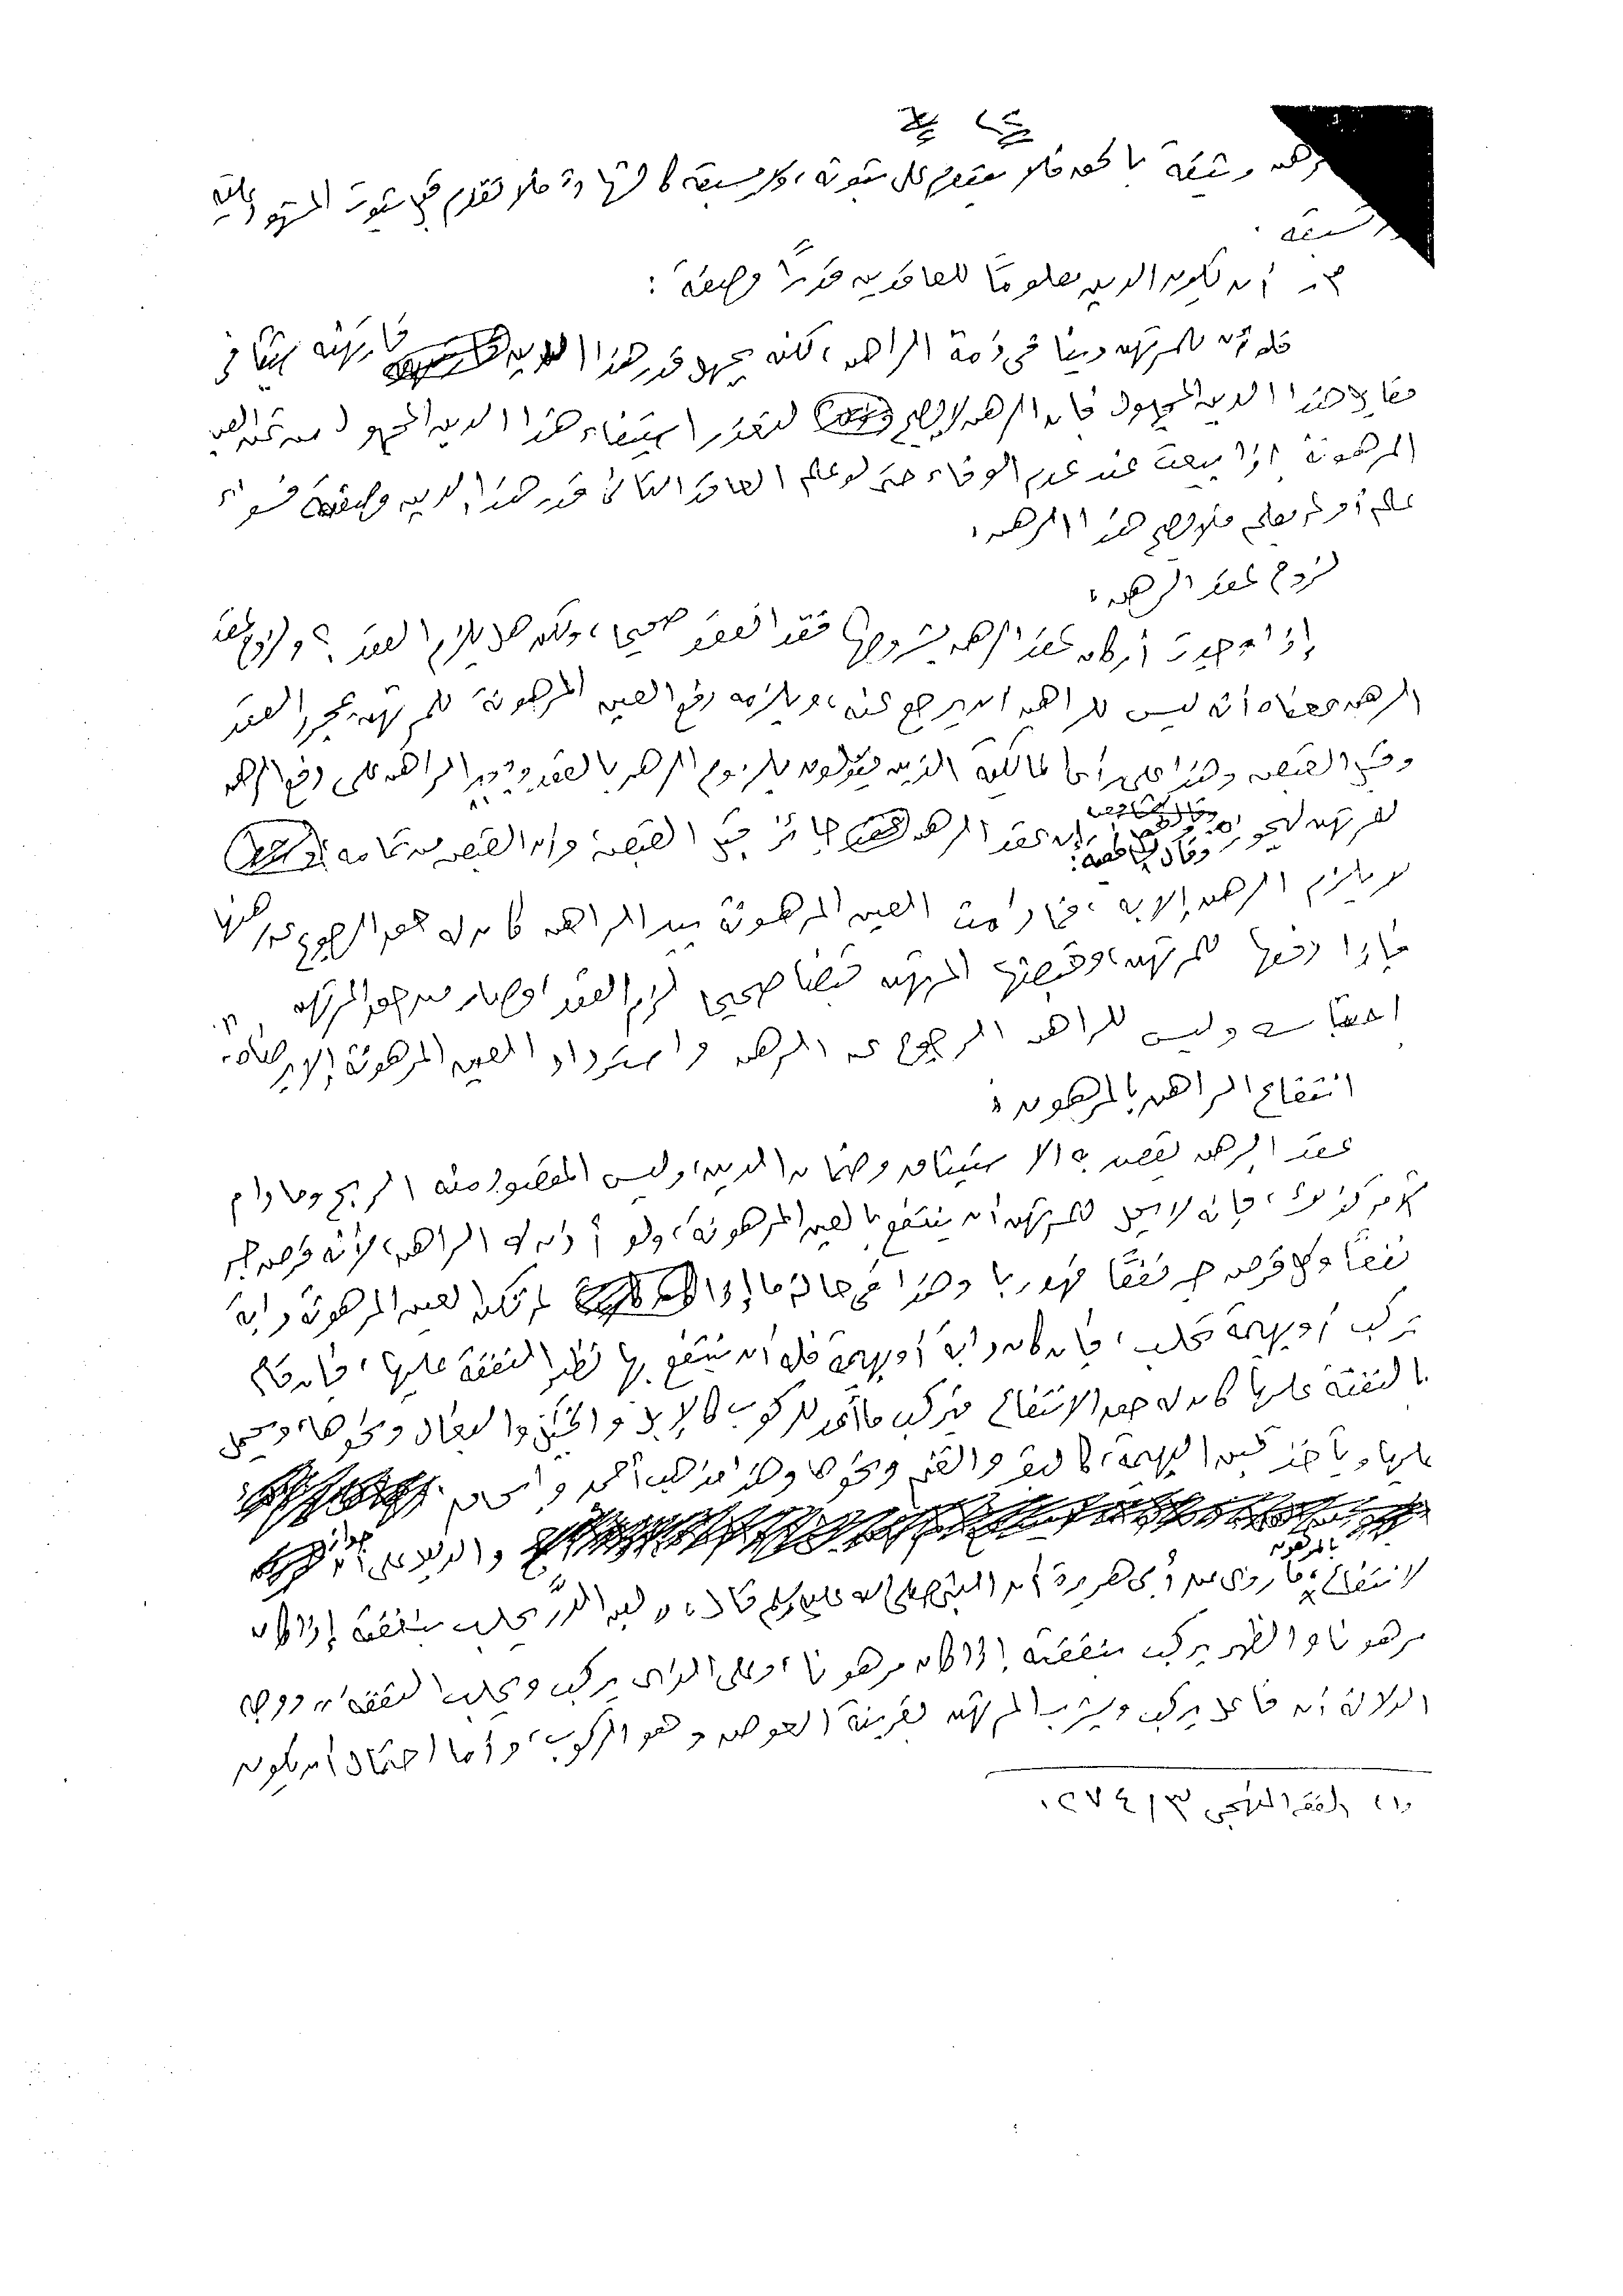 الرهن وثيقة بالحق فلا يتقدم على ثبوته، ولا يسبقه كالشهادة فلا تتقدم قبل ثبوت المشهود عليه
وتسبقه .
٣ـ أن يكون الدين معلومًا للعاقدين قدرًا وصفة :
فلو أن للمرتهن دينا في ذمة الراهن، لكنه يجهل قدر هذا الدين فارتهنه شيئا في
مقابل هذا الدين المجهول فإن الرهن لا يصح لتعذر استيفاء هذا الدين المجهول من ثمن العين
المرهونة إذا بيعت عند عدم الوفاء حتى لو علم العاقد الثاني قدر هذا الدين وصفته فسواء
علم أو لم يعلم فلا يصح هذا الرهن .
لزوم عقد الرهن :
إذا وجدت أركان عقد الرهن بشروطها فقد انعقد صحيحا، ولكن هل يلزم العقد ؟ ولزوم عقد
الرهن معناه أنه ليس للراهن أن يرجع عنه، ويلزمه دفع العين المرهونة للمرتهن بمجرد العقد
وقبل القبض وهذا على رأي المالكية الذين يقولون بلزوم الرهن بالعقد ويجبر الراهن على دفع الرهن
للمرتهن ليحوزه وقال الشافعية: إن عقد الرهن جائز قبل القبض، وأن القبض من تمامه
لا يلزم الرهن إلا به، فما دامت العين المرهونة بيد الراهن كان له حق الرجوع عن رهنها
فإذا دفعها للمرتهن، وقبضها المرتهن قبضا صحيحا لزم العقد وصار من حق المرتهن
احتباسه وليس للراهن الرجوع عن الرهن واسترداد العين المرهونة إلا برضاه.
انتفاع الراهن بالمرهون :
عقد الرهن يقصد به الاستيثاق وضمان الدين، وليس المقصود منه الربح وما دام
الأمر كذلك، فإنه لا يحل للمرتهن أن ينتفع بالعين المرهونة، ولو أذن له الراهن، لأنه قرض جر
نفعًا وكل قرض جر نفعًا فهو ربا وهذا في حالة ما إذا لم تكن العين المرهونة دابة
تركب أو بهيمة تحلب، فإن كان دابة أو بهيمة فله أن ينتفع بها نظير النفقة عليها، فإن قام
بالنفقة عليها كان له حق الانتفاع فيركب ما أعد للركوب كالإبل والخيل والبغال ونحوها، ويحمل
عليها ويأخذ لبن البهيمة، كالبقر والغنم ونحوها وهذا مذهب أحمد وإسحاق.
والدليل على جواز
الانتفاع بالمرهون، ما روى عن أبي هريرة أن النبي صلى الله عليه وسلم قال، "لبن الدَّر يحلب بنفقته إذا كان
مرهونا والظهر يركب بنفقته إذا كان مرهونا، وعلى الذى يركب ويحلب النفقة"، ووجه
الدلالة أن فاعل يركب ويشرب المرتهن بقرينة العوض وهو الركوب، وأما احتمال أن يكون
(١) الفقه المنهجي ٣/٢٧٤ .